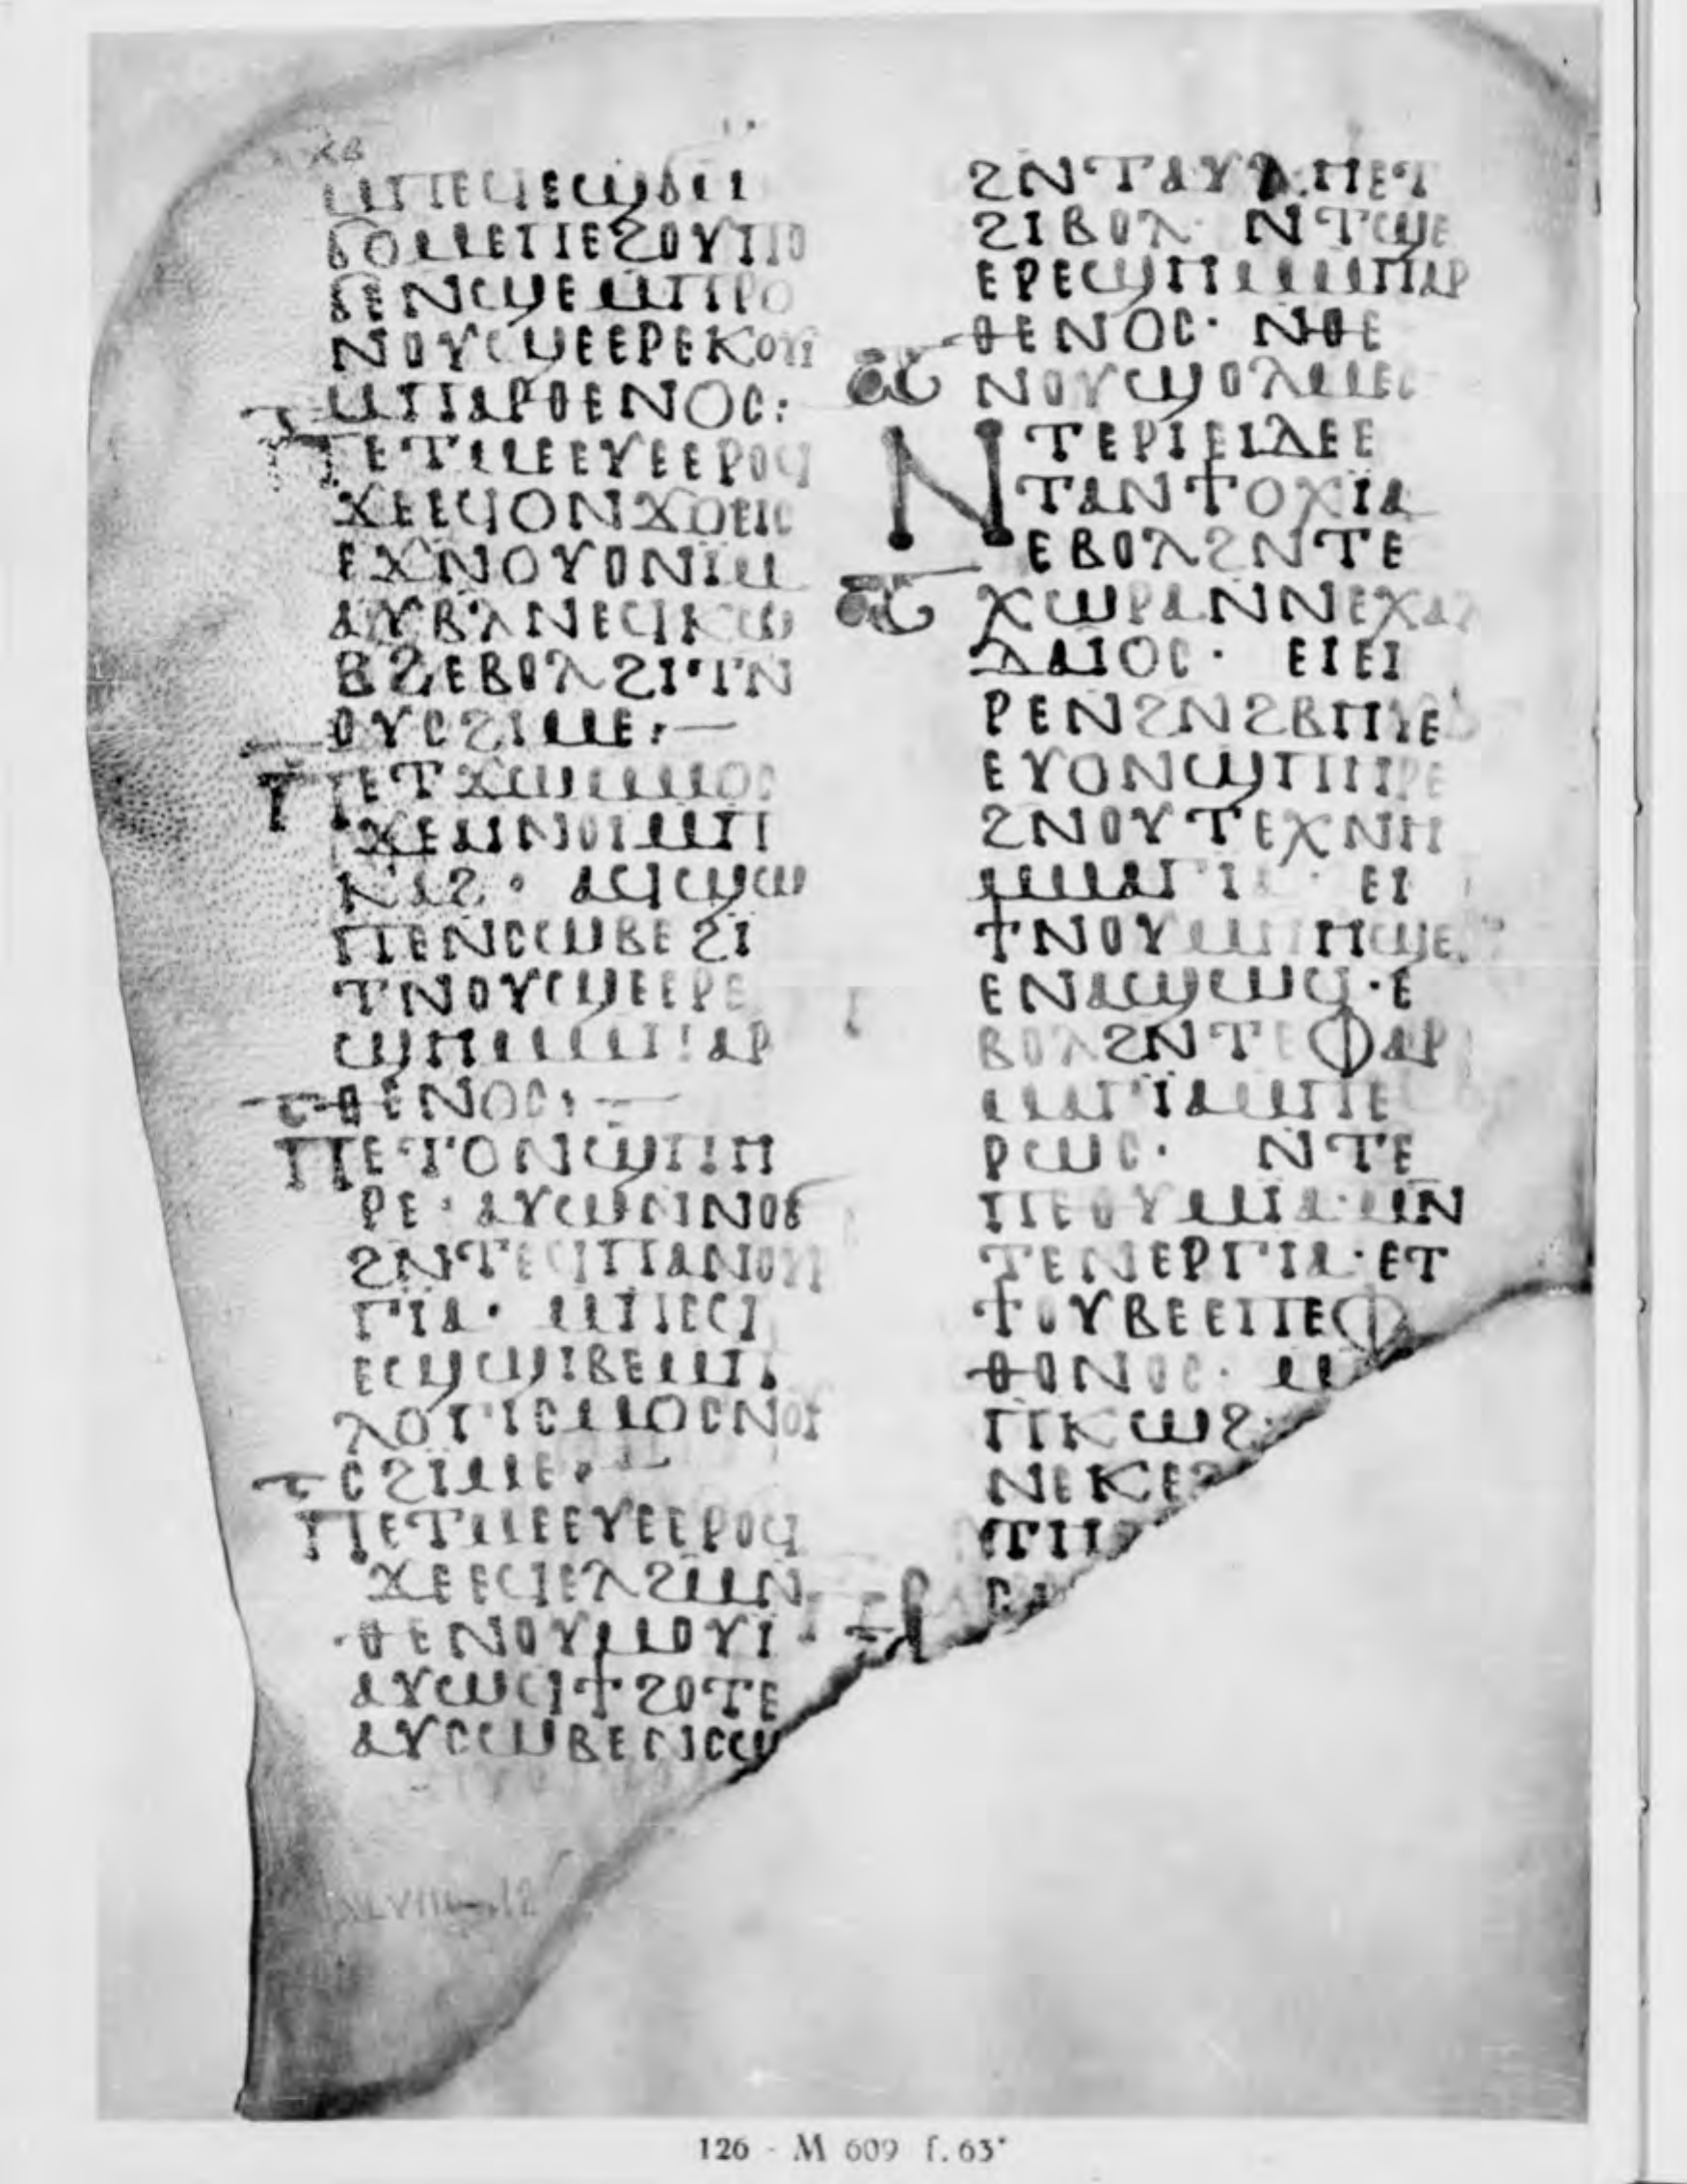 ⲙⲡⲉϥⲉϣϭⲙ
ϭⲟⲙⲉⲡⲉϩⲟⲩⲡⲟ
ϭⲉⲛϣⲉⲙⲡⲣⲟ
ⲛⲟⲩϣⲉⲉⲣⲉⲕⲟⲩⲓ
ⲙⲡⲁⲣⲑⲉⲛⲟⲥ:
ⲡⲉⲧⲙⲉⲉⲩⲉⲉⲣⲟϥ
ϫⲉⲉϥⲟⲛϫⲟⲉⲓⲥ
ⲉϫⲛⲟⲩⲟⲛⲓⲙ
ⲁⲩⲃⲗⲛⲉϥⲕⲱ
ⲃϩⲉⲃⲟⲗϩⲓⲧⲛ
ⲟⲩⲥϩⲓⲙⲉ:—
ⲡⲉⲧϫⲱⲙⲙⲟⲥ
ϫⲉⲁⲛⲟⲓⲙⲡ
ⲕⲁϩ· ⲁϥϣⲱ
ⲡⲉⲛⲥⲱⲃⲉϩⲓ
ⲧⲛⲟⲩϣⲉⲉⲣⲉ
ϣⲏⲙⲙⲡⲁⲣ
ⲑⲉⲛⲟⲥ:—
ⲡⲉⲧⲟⲛϣⲡⲏ
ⲣⲉ· ⲁⲩⲱⲛⲛⲟϭ
ϩⲛⲧⲉϥⲡⲁⲛⲟⲩⲣ
ⲅⲓⲁ· ⲙⲡⲉϥ
ⲉϣϣⲓⲃⲉⲙⲡ
ⲗⲟⲅⲓⲥⲙⲟⲥⲛⲟⲩ
ⲥϩⲓⲙⲉ:—
ⲡⲉⲧⲙⲉⲉⲩⲉⲉⲣⲟϥ
ϫⲉⲉϥⲉⲗϩⲙⲛ
ⲑⲉⲛⲟⲩⲙⲟⲩⲓ
ⲁⲩⲱϥϯϩⲟⲧⲉ
ⲁⲩⲥⲱⲃⲉⲛⲥⲱ
ϩⲛⲧⲁⲩⲗⲏⲉⲧ
ϩⲓⲃⲟⲗ· ⲛⲧϣⲉ
ⲉⲣⲉϣⲏⲙⲙⲡⲁⲣ
ⲑⲉⲛⲟⲥ· ⲛⲑⲉ
ⲛⲟⲩϣⲟⲗⲙⲉⲥ
ⲛⲧⲉⲣⲓⲉⲓⲇⲉⲉ
ⲧⲁⲛϯⲟⲭⲓⲁ
ⲉⲃⲟⲗϩⲛⲧⲉ
ⲭⲱⲣⲁⲛⲛⲉⲭⲁⲗ
ⲇⲁⲓⲟⲥ· ⲉⲓⲉⲓ
ⲣⲉⲛϩⲛϩⲃⲏⲩⲉ
ⲉⲩⲟⲛϣⲡⲏⲣⲉ
ϩⲛⲟⲩⲧⲉⲭⲛⲏ
ⲙⲙⲁⲅⲓⲁ· ⲉⲓ
ϯⲛⲟⲩⲙⲏⲏϣⲉ
ⲉⲛⲁϣⲱϥ·ⲉ
ⲃⲟⲗϩⲛⲧⲉⲫⲁⲣ
ⲙⲁⲅⲓⲁⲙⲡⲉ
ⲣⲱⲥ· ⲛⲧⲉ
ⲡⲉⲑⲩⲙⲓⲁ·ⲙⲛ
ⲧⲉⲛⲉⲣⲅⲓⲁ·ⲉⲧ
ϯⲟⲩⲃⲉⲉⲡⲉⲫ
ⲑⲟⲛⲟⲥ· ⲙ
ⲡⲕⲱϩ·
ⲛⲉⲕⲉϩ
ⲧⲏ
126 - M 609 f. 63ᵛ